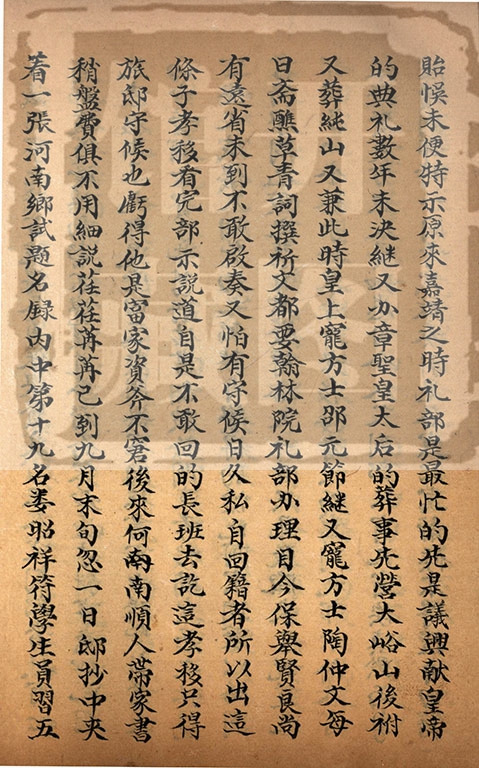 貽悞未便特示原來嘉靖之時礼部是最忙的先是議興献皇帝
的典礼数年未決継又办章聖皇太后的葬事先營大峪山後祔
又葬純山又兼此時皇上寵方士邵元節継又寵方士陶仲文每
日斋醮草青詞撰祈文都要翰林院礼部办理目今保舉賢良尚
有遠省未到不敢啟奏又怕有守候日久私自回籍者所以出這
條子孝移看完部示説道自是不敢回的長班去訖這孝移只得
旅邸守候也虧得他是富家資斧不窘後來何南順人帶家書
稍盤費俱不用細説荏荏苒苒已到九月末旬忽一日邸抄中夾
着一張河南鄉試題名録内中第十九名娄昭祥符學生員習五